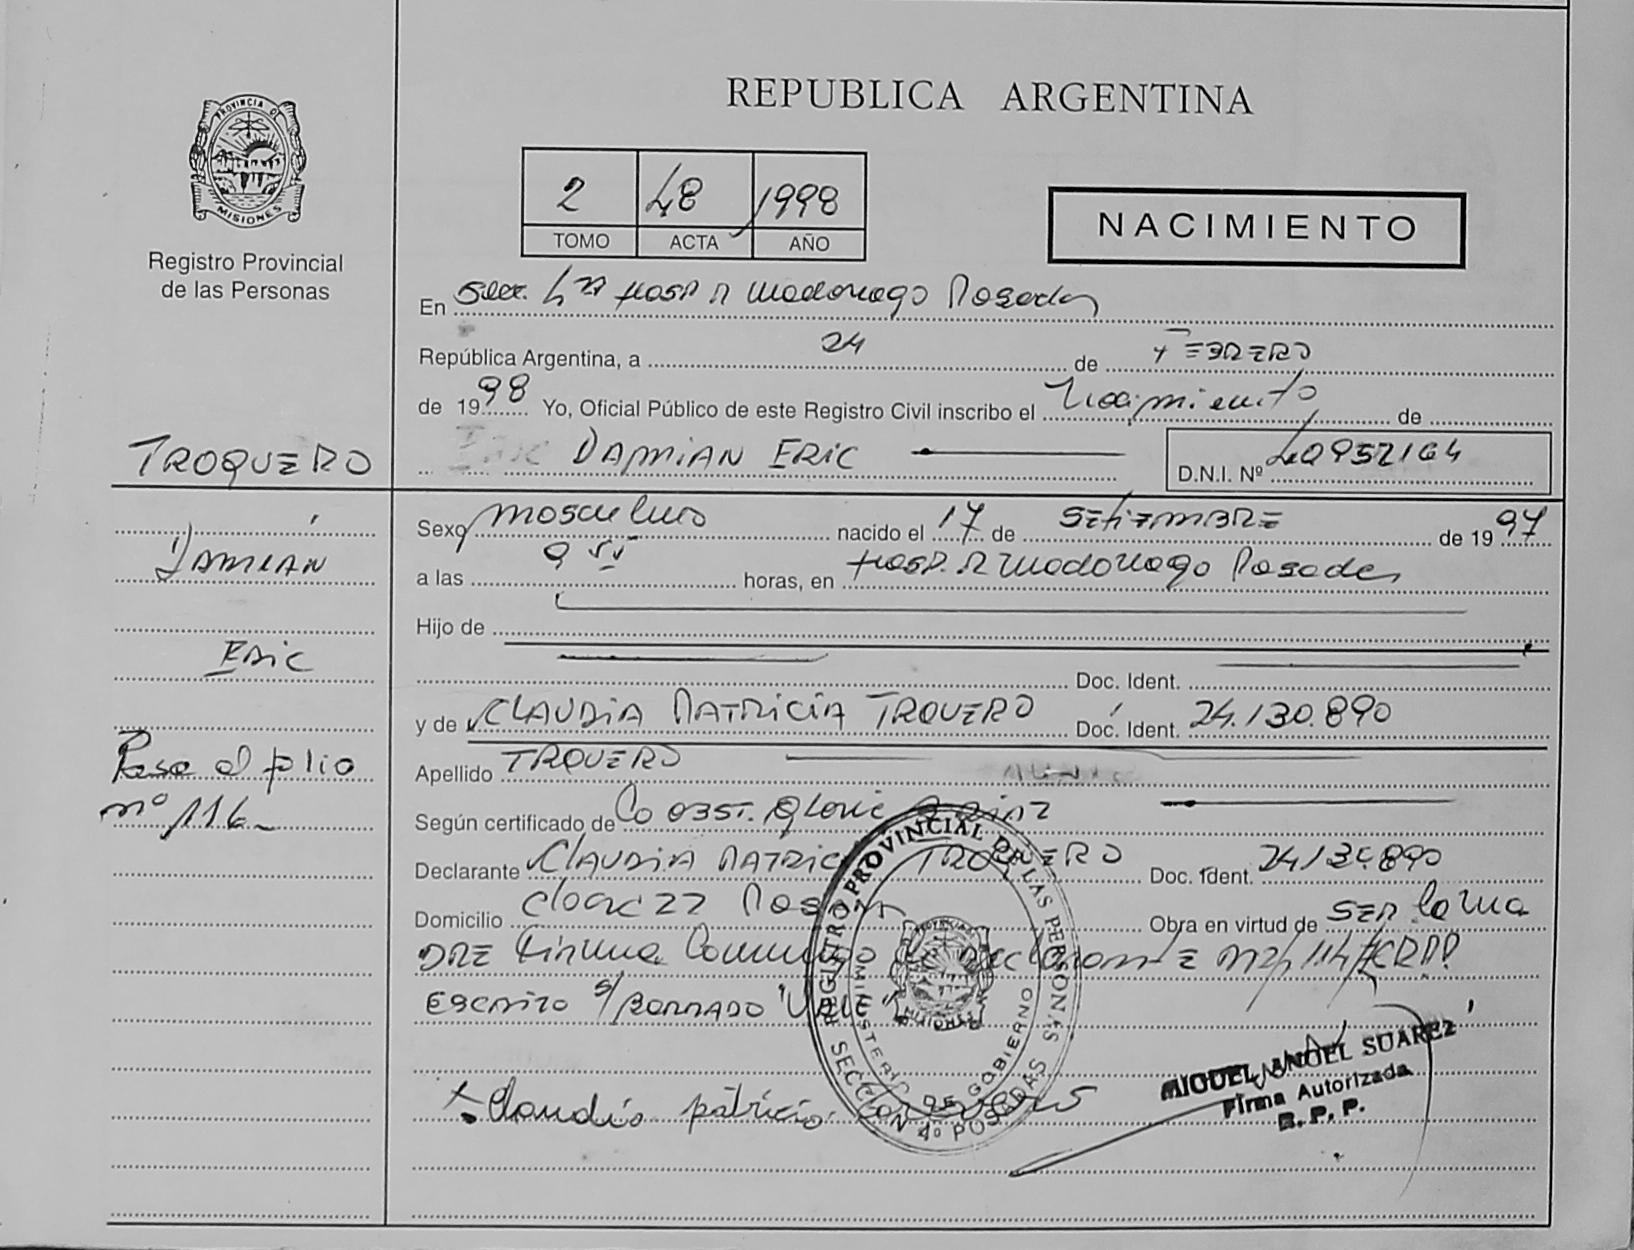 REPUBLICA ARGENTINA
PROVINCIA DE
MISIONES
Registro Provincial
de las Personas
2 48 1998
TOMO ACTA AÑO
NACIMIENTO
En Secc. 4ta Hosp R Madariaga Posadas
República Argentina, a 24 de FEBRERO
de 1998 Yo, Oficial Público de este Registro Civil inscribo el Nacimiento de
TROQUERO
DAMIAN ERIC D.N.I. Nº 40952164
Sexo masculino nacido el 17 de SETIEMBRE de 1997
DAMIAN
a las 9 horas, en Hosp. R Madariaga Posadas
Hijo de
ERIC
Doc. Ident.
y de CLAUDIA PATRICIA TROUERO Doc. Ident. 24.130.890
Pasa al folio
nº 116
Apellido TROUERO
Según certificado de Co OBST. Glorie
Declarante CLAUDIA PATRICIA TROQUERO Doc. Ident. 24130890
Domicilio 22 Obra en virtud de SER la MA
DRE Firma Conmigo Declarante
ESCRITO S/BORRADO "VALE"
REGISTRO PROVINCIAL DE LAS PERSONAS
MINISTERIO DE GOBIERNO
SECCION 4º POSADAS
Claudia patricia
MIGUEL ANGEL SUAREZ
Firma Autorizada
R. P. P.